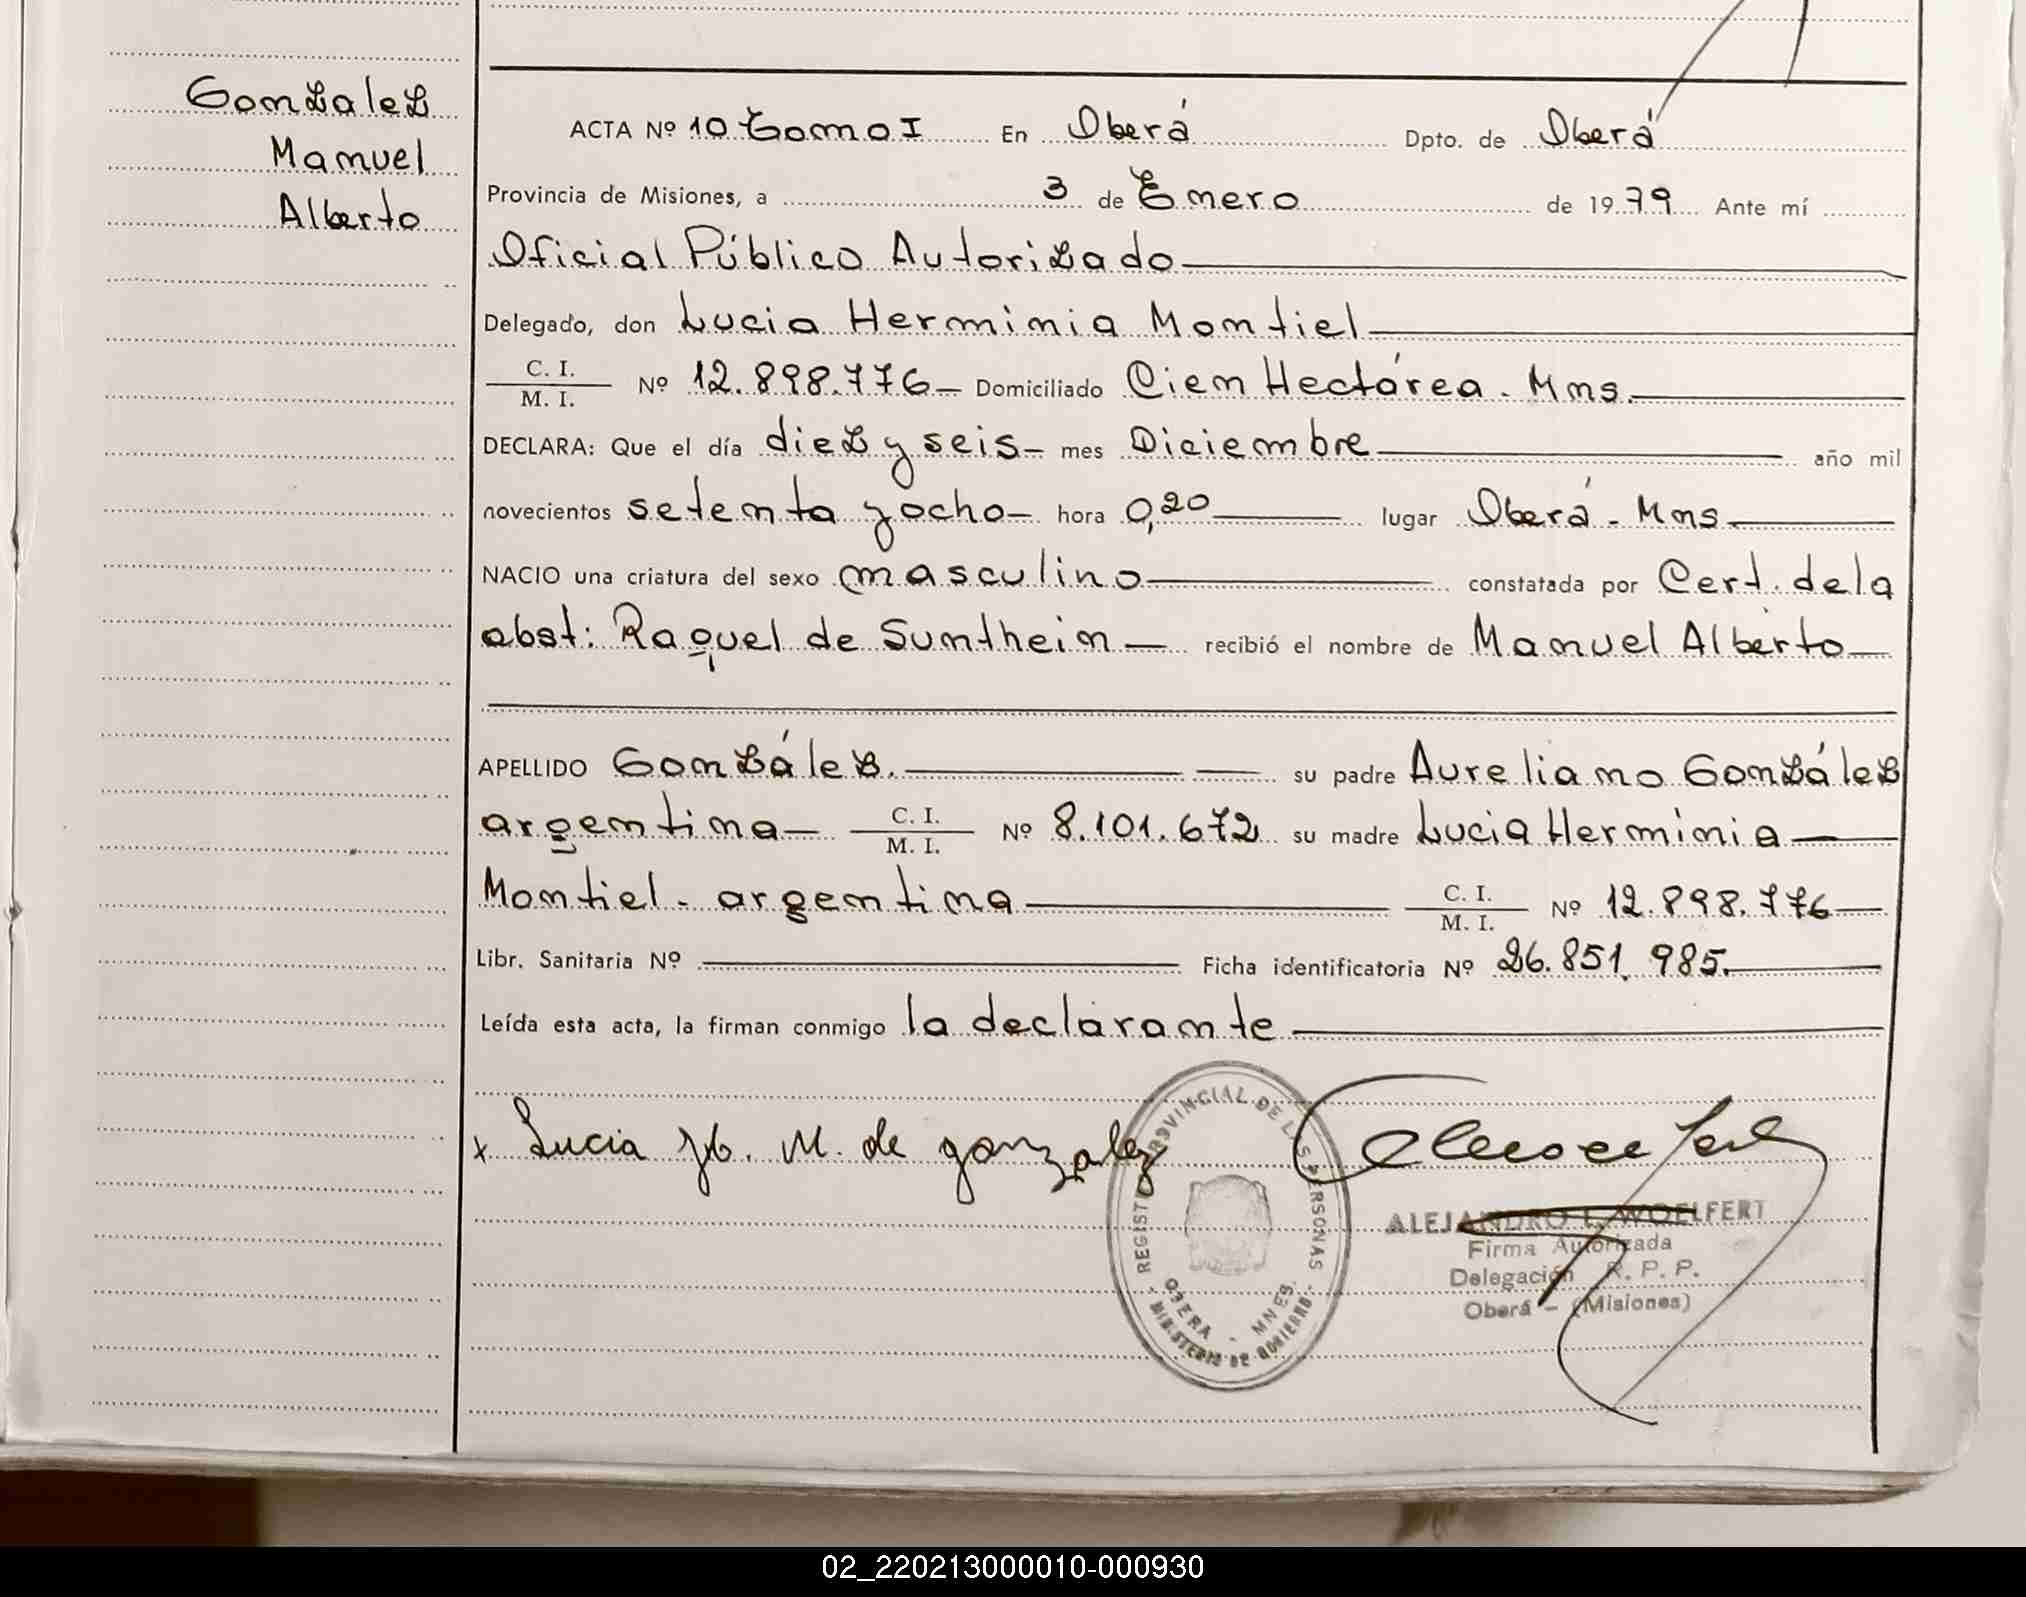 Gonzalez
Manuel
Alberto
ACTA Nº 10 Tomo I En Oberá Dpto. de Oberá
Provincia de Misiones, a 3 de Enero de 1979 Ante mí
Oficial Público Autorizado
Delegado, don Lucia Herminia Montiel
C. I. / M. I. Nº 12.898.776 Domiciliado Cien Hectárea. Mns.
DECLARA: Que el día diez y seis mes Diciembre año mil
novecientos setenta y ocho hora 0,20 lugar Oberá - Mns
NACIO una criatura del sexo masculino constatada por Cert. de la
obst: Raquel de Sunthein recibió el nombre de Manuel Alberto
APELLIDO González. su padre Aureliano González
argentina C. I. / M. I. Nº 8.101.672 su madre Lucia Herminia
Montiel - argentina C. I. / M. I. Nº 12.898.776
Libr. Sanitaria Nº Ficha identificatoria Nº 26.851.985.
Leída esta acta, la firman conmigo la declarante
x Lucia H. M. de gonzalez
REGISTRO PROVINCIAL DE LAS PERSONAS
OBERA - MNES.
MINISTERIO DE GOBIERNO
ALEJANDRO L. WOELFERT
Firma Autorizada
Delegación R. P. P.
Oberá - (Misiones)
02_220213000010-000930